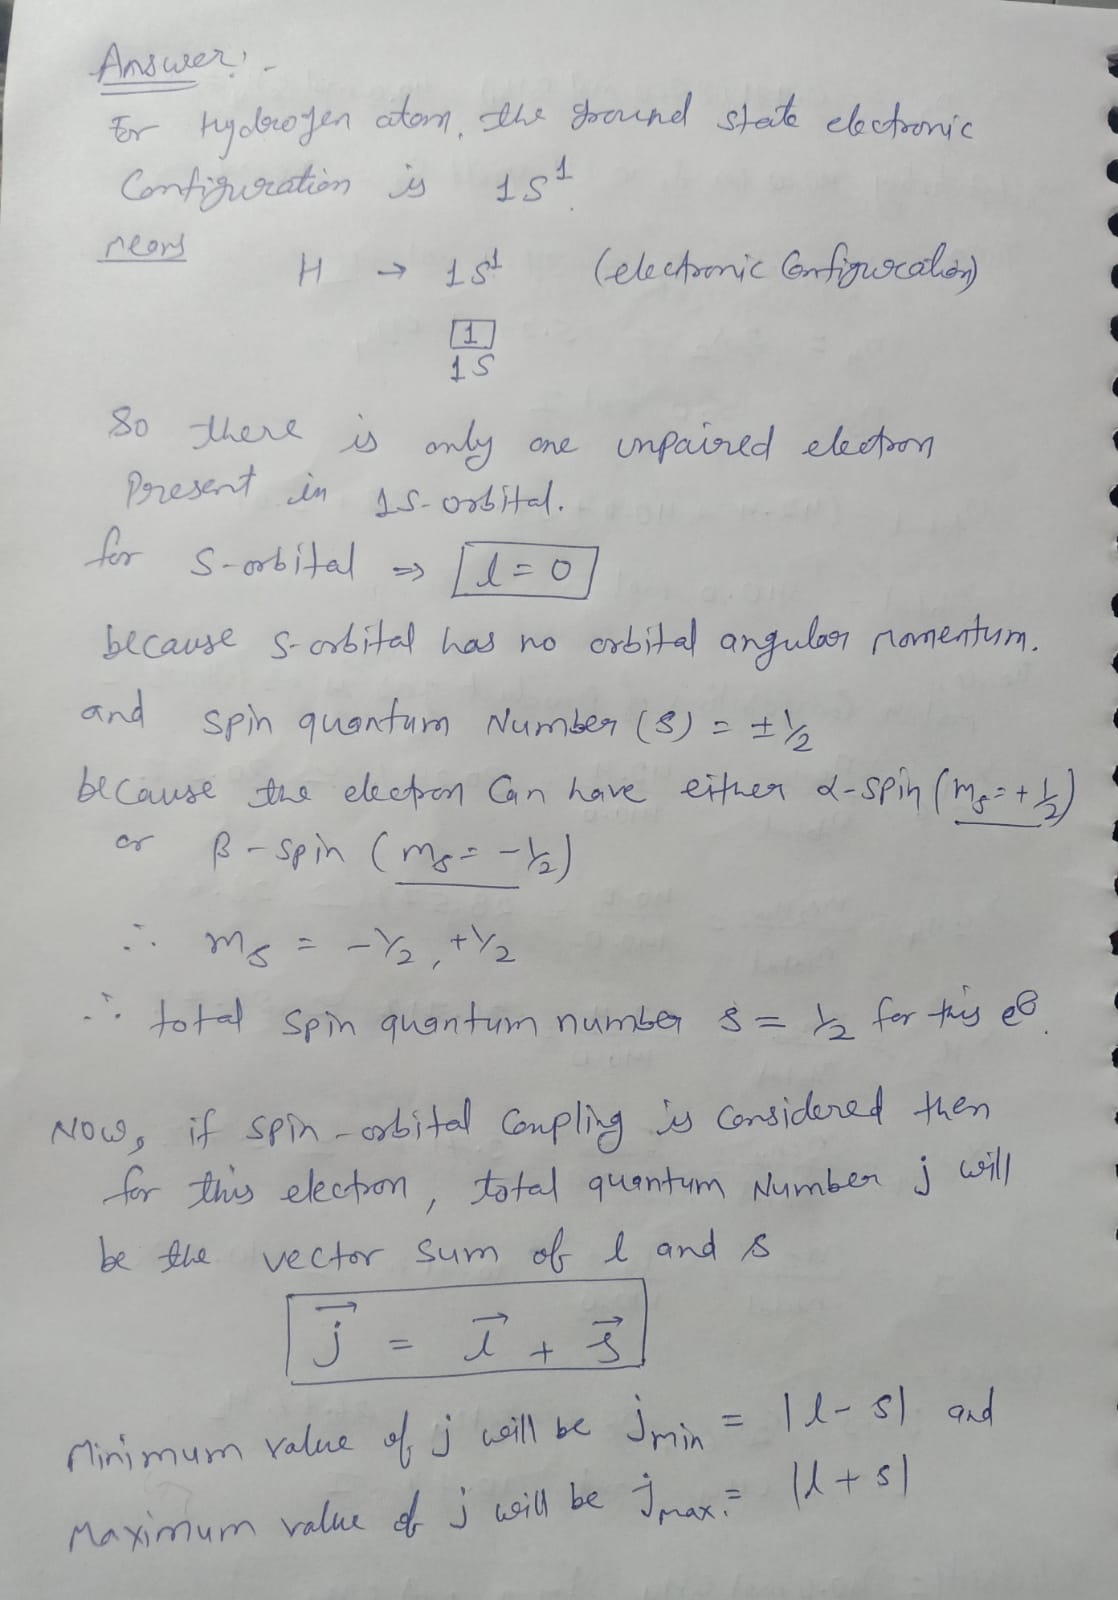 Answer:-
For Hydrogen atom, the ground state electronic
Configuration is 1S¹.
means
H → 1S¹ (electronic Configuration)
1
1S
So there is only one unpaired electron
Present in 1S-orbital.
for S-orbital ⇒ l = 0
because S-orbital has no orbital angular momentum.
and spin quantum Number (s) = ±1/2
because the electron Can have either α-spin (ms = +1/2)
or β-spin (ms = -1/2)
∴ ms = -1/2, +1/2
∴ total spin quantum number s = 1/2 for this e⊖.
Now, if spin-orbital Coupling is Considered then
for this electron, total quantum Number j will
be the vector sum of l and s
j⃗ = l⃗ + s⃗
Minimum value of j will be jmin = |l-s| and
Maximum value of j will be jmax. = |l+s|